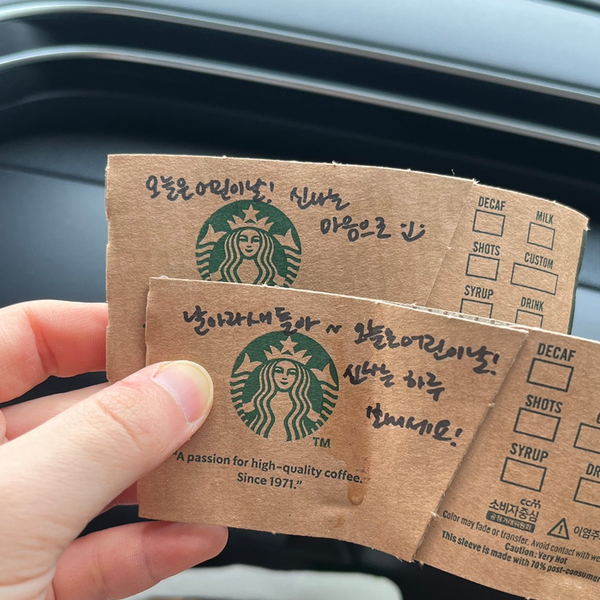 오늘은 어린이날! 신나는
마음으로
DECAF
MILK
SHOTS
CUSTOM
SYRUP
DRINK
날아라 새들아 ~ 오늘은 어린이날!
신나는 하루
보내세요!
TM
"A passion for high-quality coffee.
Since 1971."
DECAF
SHOTS
SYRUP
ccm
소비자중심
공정거래위원회
Color may fade or transfer. Avoid contact with
Caution: Very Hot
This sleeve is made with 70% post-consumer